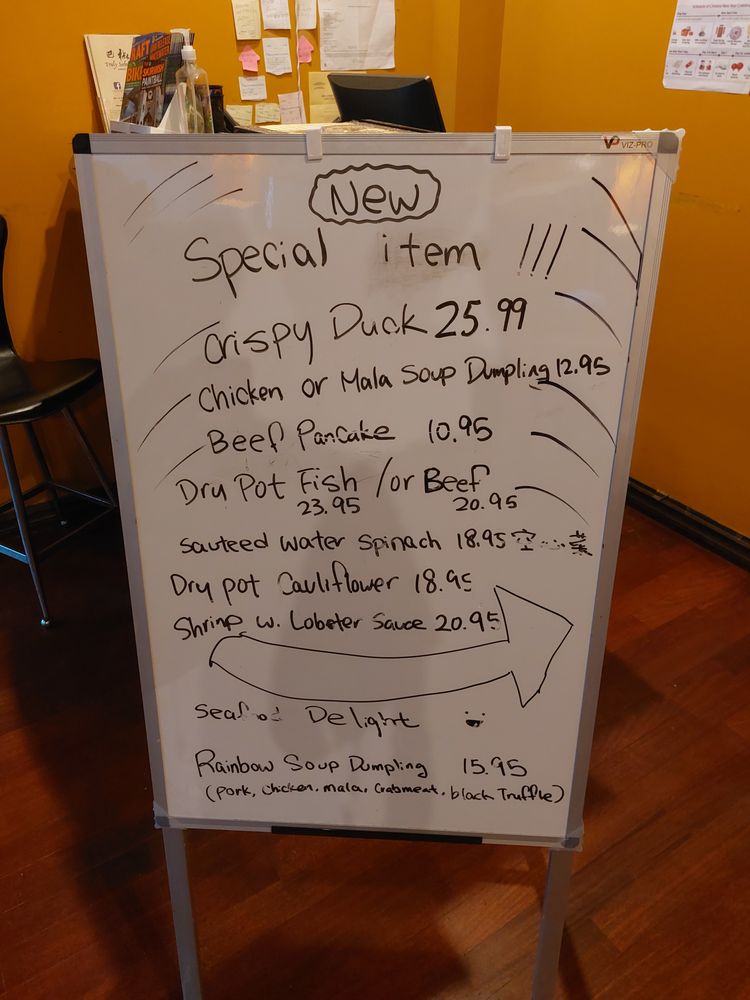 VIZ-PRO
New
Special item !!!
Crispy Duck 25.99
Chicken or Mala Soup Dumpling 12.95
Beef Pancake 10.95
Dry Pot Fish / or Beef
23.95 20.95
Sauteed Water Spinach 18.95 空心菜
Dry pot Cauliflower 18.95
Shrimp w. Lobster Sauce 20.95
Seafood Delight
Rainbow Soup Dumpling 15.95
(pork, chicken, mala, Crabmeat, black Truffle)